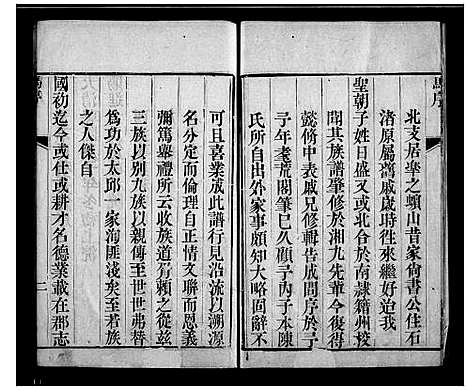 馬序
北支居率之頰山昔家尚書公住石
渚原屬舊戚歲時徃來繼好迨我
聖朝子姓日盛又或北合於南隸籍州校
閱其族譜肇修於湘九先輩今復得
懿脩中表戚兄修輯告成問序於予
予年耄荒閣筆巳久顧予予本陳
氏所自出外家事頗知大略固辭不
可且喜業成此譜行見沿流以溯源
名分定而倫理自正情文聯而恩義
彌篤舉禮所云收族道行賴之從兹
三族以別九族以親傳至世世弗替
爲功於太邱一家洵匪淺矣至若族
之人傑自
國初迄今或仕或耕才名德業載在郡志
馬序
二